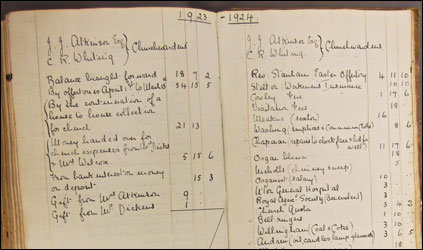 1923 - 1924
J. J. Atkinson Esq
C. R. Whiting } Churchwardens
Balance brought forward 18 9 2
By offertories April 1 to 54 15 5
(By the continuation of a
house to house collection
for church 21 13
(Money handed over for
church expenses from Mrs Dicks
to Mr Wilcox 5 15 6
From bank interest on money
on deposit 15 3
Gift from Mrs Atkinson 9
Gift from Mrs Dickens 1
J. J. Atkinson Esq
C. R. Whiting } Churchwardens
Rev. Stanham Easter Offertory 4 11 10
Stott or Workmens Insurance 10 10
Cowley Fire 1 17 6
Visitation Fees 18
Meakins (sexton) 16
Washing surplices & Communion Cloths 8 6
Chapman repairs to clock, fires
well) 11 17 6
Organ blower 18
Nicholls (chimney sweep) 5
Organist (salary) 10
W'bro General Hospital 3 3
Royal Agric. Society (Benevolent) 3 4 2
Church Quota 3
Bell ringers 1
Wellingham (coal & coke) 3 10
(oil candles lamp glasses) 3 6 5